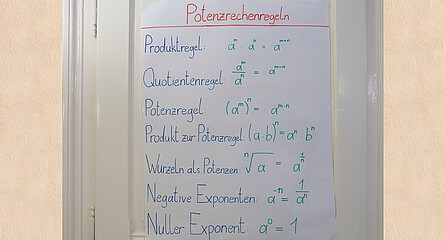 Potenzrechenregeln
Produktregel: aᵐ · aⁿ = aᵐ⁺ⁿ
Quotientenregel: aᵐ/aⁿ = aᵐ⁻ⁿ
Potenzregel: (aᵐ)ⁿ = aᵐ·ⁿ
Produkt zur Potenzregel: (a·b)ⁿ = aⁿ · bⁿ
Wurzeln als Potenzen: ⁿ√a = a^(1/n)
Negative Exponenten: a⁻ⁿ = 1/aⁿ
Nuller Exponent a⁰ = 1